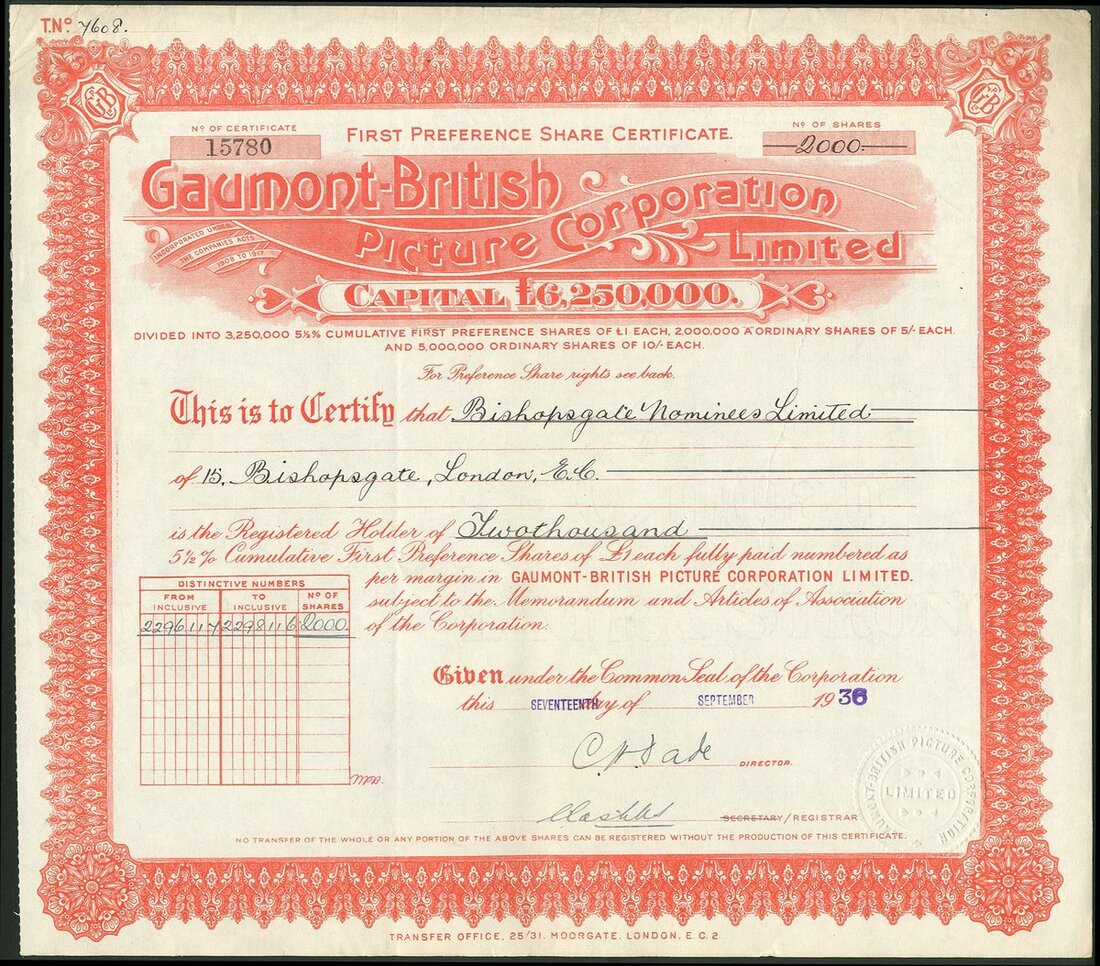 T.Nº 7608.
GB
GB
Nº OF CERTIFICATE
15780
FIRST PREFERENCE SHARE CERTIFICATE.
Nº OF SHARES
2000
Gaumont-British
Picture Corporation
Limited
INCORPORATED UNDER
THE COMPANIES ACTS
1908 TO 1917
CAPITAL £6,250,000.
DIVIDED INTO 3,250,000 5½% CUMULATIVE FIRST PREFERENCE SHARES OF £1 EACH, 2,000,000 "A" ORDINARY SHARES OF 5/- EACH
AND 5,000,000 ORDINARY SHARES OF 10/- EACH.
For Preference Share rights see back.
This is to Certify that Bishopsgate Nominees Limited
of 15, Bishopsgate, London, E.C.
is the Registered Holder of Twothousand
5½% Cumulative First Preference Shares of £1 each fully paid numbered as
per margin in GAUMONT-BRITISH PICTURE CORPORATION LIMITED.
subject to the Memorandum and Articles of Association
of the Corporation.
DISTINCTIVE NUMBERS
FROM INCLUSIVE TO INCLUSIVE Nº OF SHARES
2296117 2298116 2000
Given under the Common Seal of the Corporation
this SEVENTEENTH day of SEPTEMBER 1936
DIRECTOR.
SECRETARY/REGISTRAR
GAUMONT-BRITISH PICTURE CORPORATION
LIMITED
NO TRANSFER OF THE WHOLE OR ANY PORTION OF THE ABOVE SHARES CAN BE REGISTERED WITHOUT THE PRODUCTION OF THIS CERTIFICATE.
TRANSFER OFFICE, 25/31. MOORGATE. LONDON. E.C.2